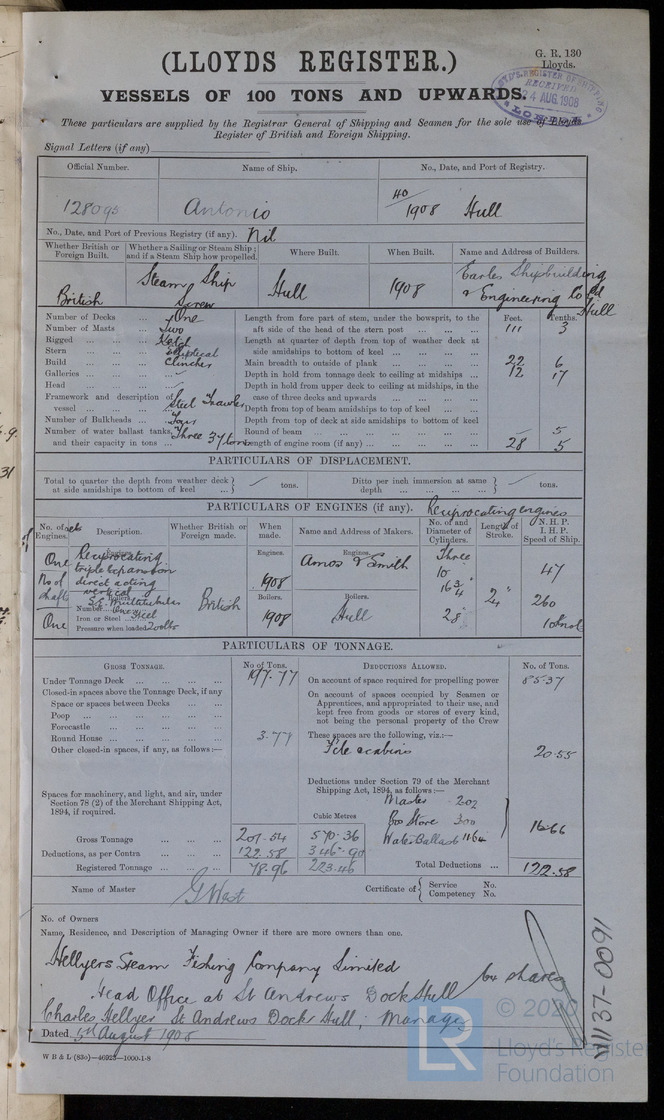 (LLOYDS REGISTER.)
G. R. 130
Lloyds.
VESSELS OF 100 TONS AND UPWARDS.
LLOYD'S REGISTER OF SHIPPING
RECEIVED
24 AUG. 1908
These particulars are supplied by the Registrar General of Shipping and Seamen for the sole use of Lloyds
Register of British and Foreign Shipping.
Signal Letters (if any)
Official Number. Name of Ship. No., Date, and Port of Registry.
128095 Antonio 40/1908 Hull
No., Date, and Port of Previous Registry (if any). Nil
Whether British or Foreign Built. Whether a Sailing or Steam Ship; and if a Steam Ship how propelled. Where Built. When Built. Name and Address of Builders.
British Steam Ship Screw Hull 1908 Earles Shipbuilding & Engineering Co Ld Hull
Number of Decks ... One
Number of Masts ... Two
Rigged ... Ketch
Stern ... Elliptical
Build ... Clincher
Galleries ...
Head ...
Framework and description of vessel ... Steel Trawler
Number of Bulkheads ... Four
Number of water ballast tanks, and their capacity in tons ... Three 37 tons
Feet. Tenths.
Length from fore part of stem, under the bowsprit, to the aft side of the head of the stern post ... 111 3
Length at quarter of depth from top of weather deck at side amidships to bottom of keel ...
Main breadth to outside of plank ... 22 6
Depth in hold from tonnage deck to ceiling at midships ... 12 17
Depth in hold from upper deck to ceiling at midships, in the case of three decks and upwards ...
Depth from top of beam amidships to top of keel ...
Depth from top of deck at side amidships to bottom of keel
Round of beam ... 5
Length of engine room (if any) ... 28 5
PARTICULARS OF DISPLACEMENT.
Total to quarter the depth from weather deck at side amidships to bottom of keel ... tons.
Ditto per inch immersion at same depth ... tons.
PARTICULARS OF ENGINES (if any). Reciprocating engines
No. of sets of Engines. Description. Whether British or Foreign made. When made. Name and Address of Makers. No. of and Diameter of Cylinders. Length of Stroke. N.H.P. I.H.P. Speed of Ship.
One
No of shafts
One
Engines.
Reciprocating triple expansion direct acting vertical
Boilers.
Number ... One
Iron or Steel ... Steel
Pressure when loaded 200 lbs
British
Engines. 1908
Boilers. 1908
Engines. Amos & Smith
Boilers. Hull
Three
10"
16 3/4"
28"
24"
47
260
10 knots
PARTICULARS OF TONNAGE.
GROSS TONNAGE. No. of Tons.
Under Tonnage Deck ... 197.77
Closed-in spaces above the Tonnage Deck, if any
Space or spaces between Decks ...
Poop ...
Forecastle ...
Round House ... 3.77
Other closed-in spaces, if any, as follows:—
Spaces for machinery, and light, and air, under Section 78 (2) of the Merchant Shipping Act, 1894, if required.
Cubic Metres
Gross Tonnage ... 201.54 570.36
Deductions, as per Contra ... 122.58 346.90
Registered Tonnage ... 78.96 223.46
DEDUCTIONS ALLOWED. No. of Tons.
On account of space required for propelling power 85.37
On account of spaces occupied by Seamen or Apprentices, and appropriated to their use, and kept free from goods or stores of every kind, not being the personal property of the Crew
These spaces are the following, viz.:—
20.55
Deductions under Section 79 of the Merchant Shipping Act, 1894, as follows:—
Master 202
Bo Store 300
Water Ballast 1164
16.66
Total Deductions ... 122.58
Name of Master G West
Certificate of Service No.
Competency No.
No. of Owners
Name, Residence, and Description of Managing Owner if there are more owners than one.
Hellyers Steam Fishing Company Limited
Head Office at St Andrews Dock Hull 64 shares
Charles Hellyer St Andrews Dock Hull, Manager
Dated 5th August 1908
W B & L (83o)—46923—1000-1-8
W1137-0091
LR
© 2020
Lloyd's Register
Foundation